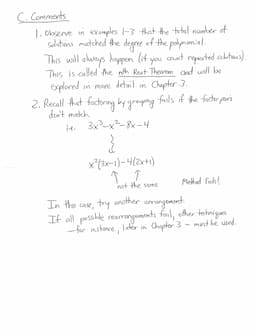 C. Comments
1. Observe in examples 1-3 that the total number of
solutions matched the degree of the polynomial.
This will always happen (if you count repeated solutions).
This is called the nth Root Theorem and will be
explored in more detail in Chapter 3.
2. Recall that factoring by grouping fails if the factor pairs
don't match.
i.e. 3x³-x²-8x-4
x²(3x-1)-4(2x+1)
not the same
Method Fails!
In this case, try another arrangement.
If all possible rearrangements fail, other techniques
- for instance, later in Chapter 3 - must be used.